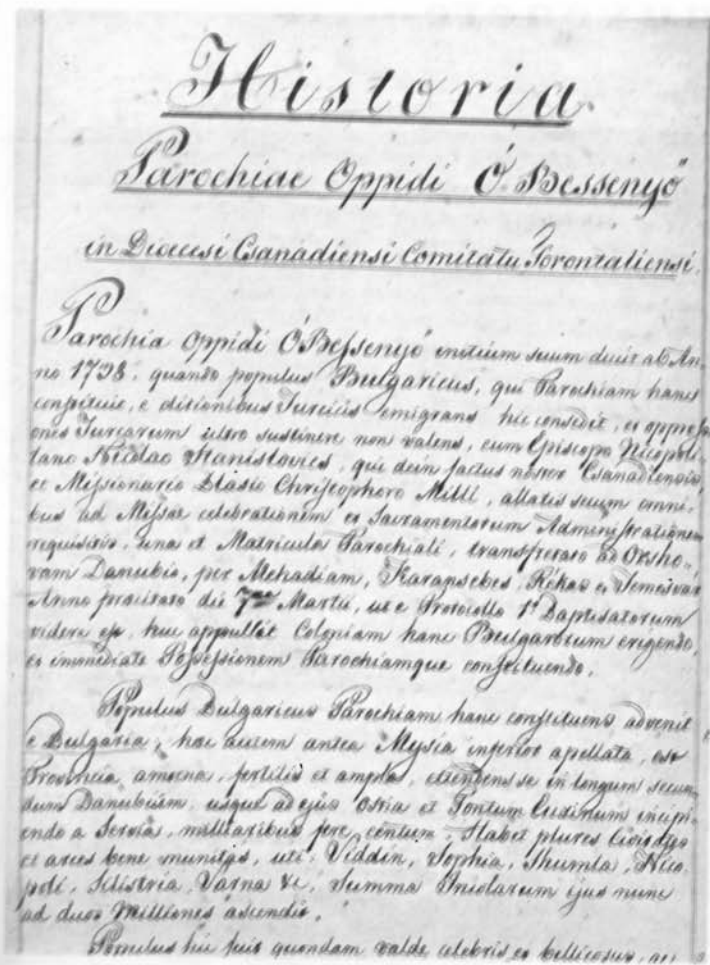 Historia
Parochiae Oppidi Ó Bessenyő
in Diocesi Csanádiensi Comitatu Torontaliensi.
Parochia Oppidi Ó Bessenyő initium suum ducit ab An-
no 1738. quando populus Bulgaricus, qui Parochiam hanc
constituit, e ditionibus Turcicis emigrans hic consedit, et oppressi
ones Turcarum ultro sustinere non valens, cum Episcopo Nicopoli
tano Nicolao Stanislovics, qui dein factus noster Csanádiensis
et Missionario Blasio Chrystophoro Milli, allatis secum omni-
bus ad Missae celebrationem et Sacramentorum Administrationem
requisitis, una et Matricula Parochiali, transfretato ad Orsho-
vam Danubio, per Mehadiam, Karansebes, Rékas et Temesvár
Anno praecitato die 7ma Martii, ut e Protocollo 1o Baptisatorum
videre est, huc appullit Coloniam hanc Bulgarorum erigendo,
et immediate Possessionem Parochiamque constituendo.
Populus Bulgaricus Parochiam hanc constituens advenit
e Bulgaria, haec autem antea Mysia inferior apellata, est
Provincia amoena, fertilis et ampla, extendens se in longum secun
dum Danubium, usque ad ejus Ostia et Pontum Euxinum incipi
endo a Servia, milliaribus fere centum. Habet plures Civitates
et arces bene munitas, uti: Viddin, Sophia, Shumla, Nico
poli, Silistria, Varna &c. Summa Incolarum ejus nunc
ad duos Milliones ascendit.
Populus hic fuit quondam valde celebris et bellicosus, ac